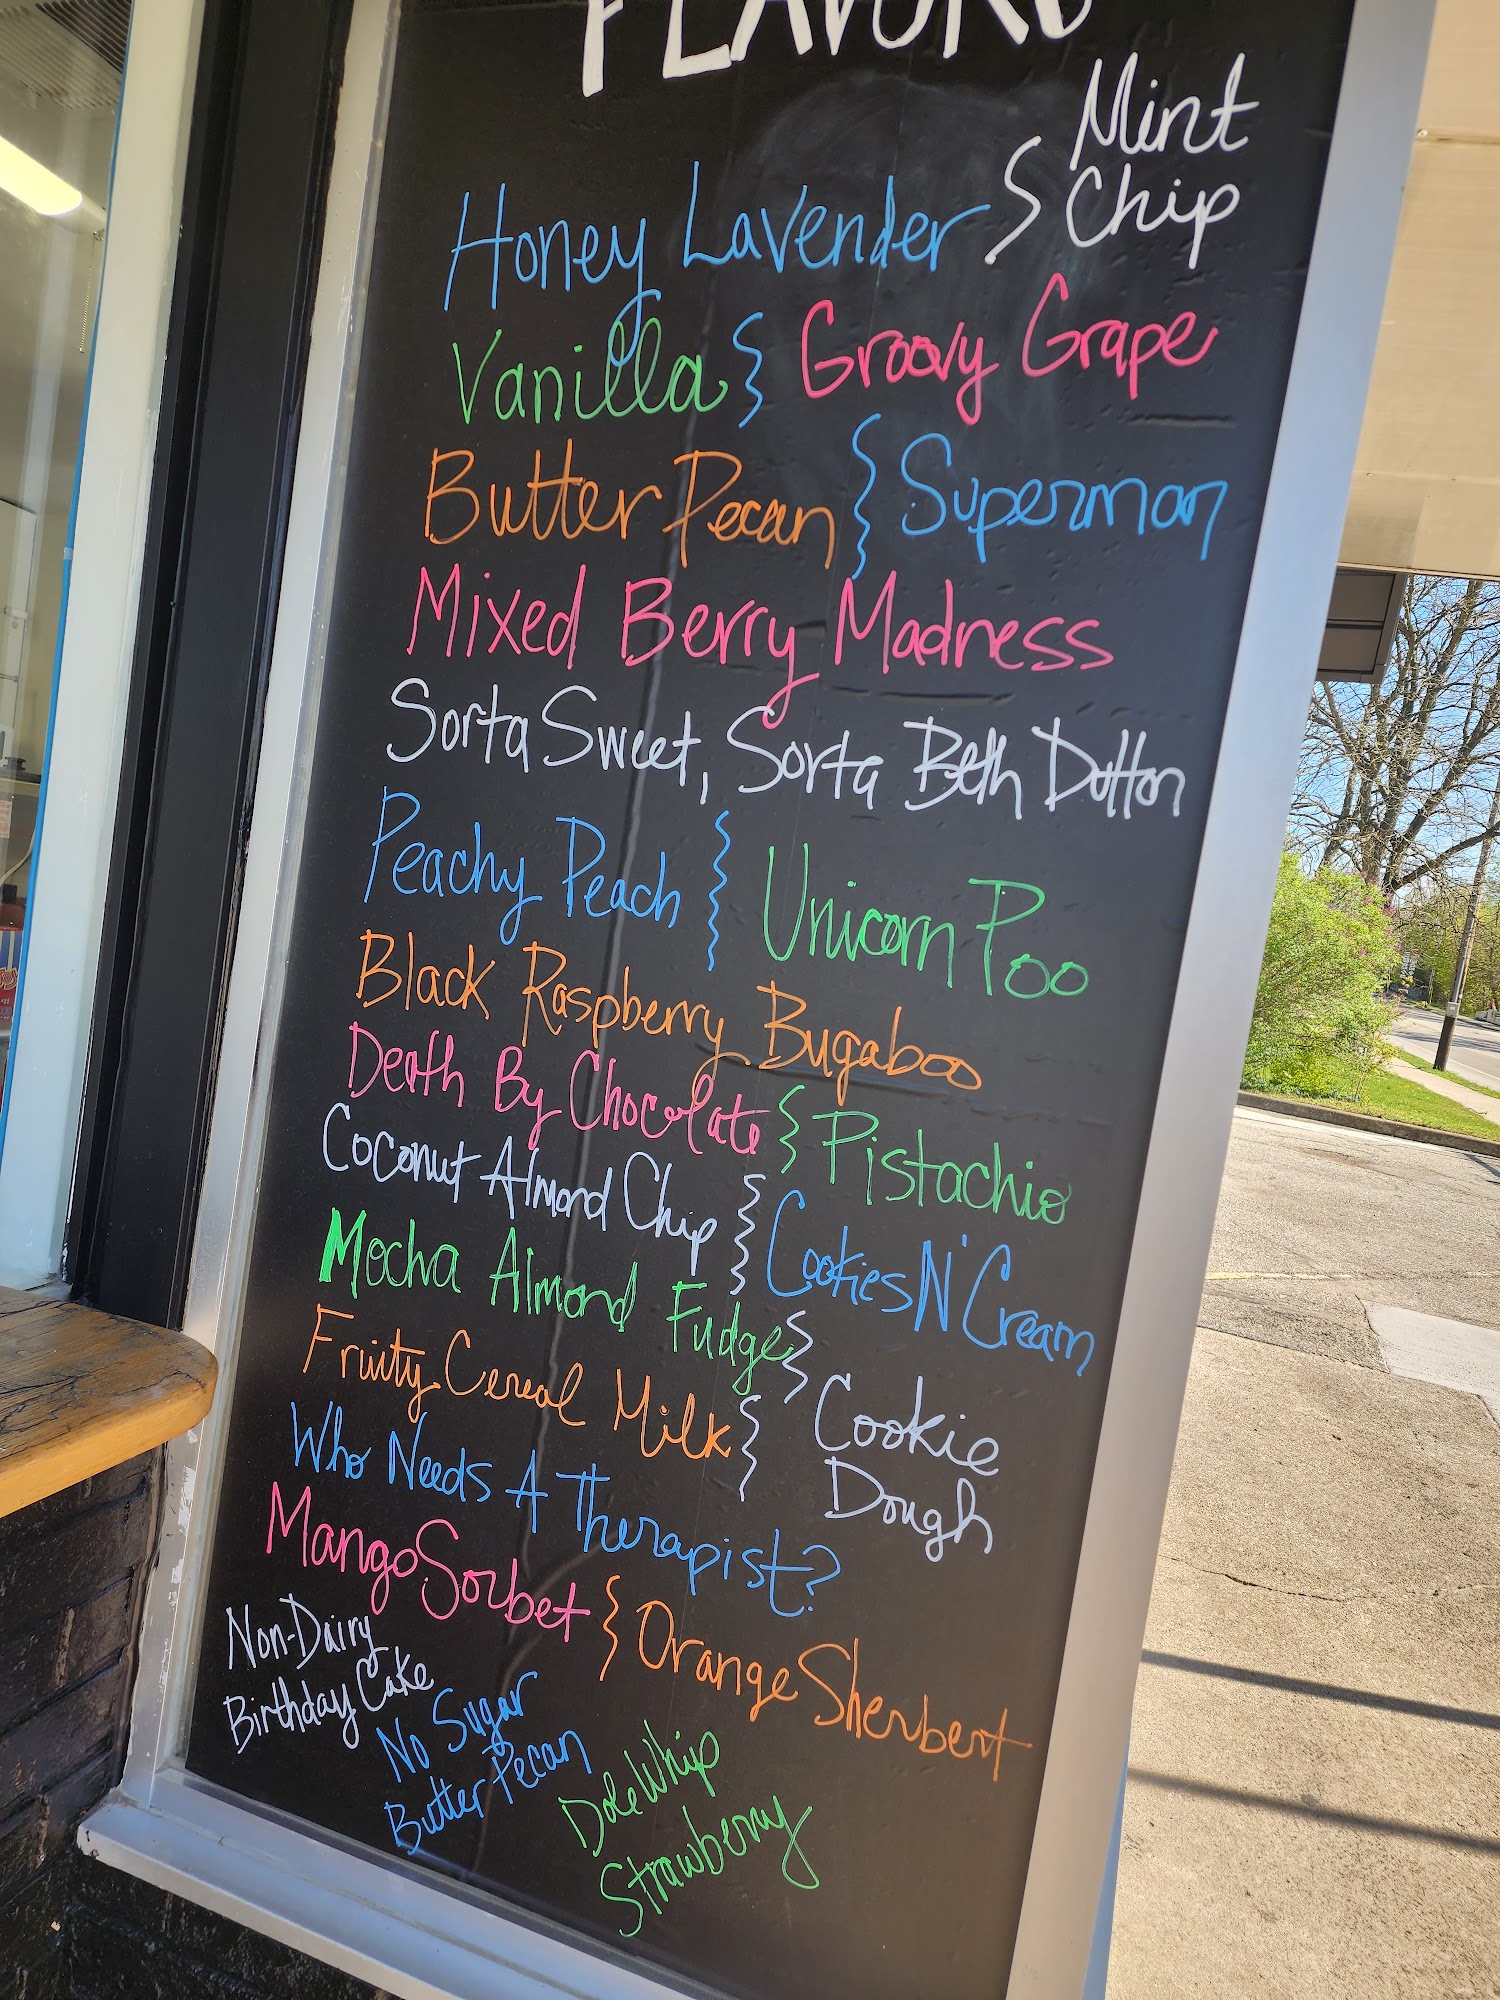 FLAVORS
Honey Lavender
Mint
Chip
Vanilla
Groovy Grape
Butter Pecan
Superman
Mixed Berry Madness
Sorta Sweet, Sorta Beth Dutton
Peachy Peach
Unicorn Poo
Black Raspberry Bugaboo
Death By Chocolate
Pistachio
Coconut Almond Chip
Cookies N' Cream
Mocha Almond Fudge
Cookie
Dough
Fruity Cereal Milk
Who Needs A Therapist?
Mango Sorbet
Orange Sherbert
Non-Dairy
Birthday Cake
No Sugar
Butter Pecan
Dole Whip
Strawberry